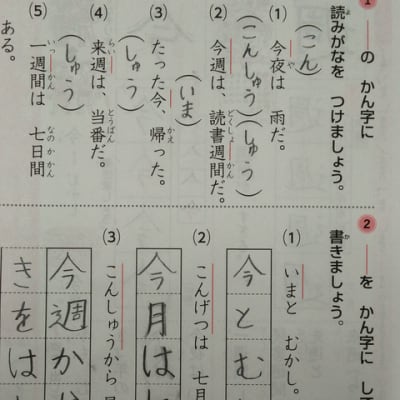 1 ――の かん字に
読みがなを つけましょう。
(1) 今夜は 雨だ。
(こん)
(2) 今週は、読書週間だ。
(こんしゅう)(しゅう)
(3) たった今、帰った。
(いま)
(4) 来週は、当番だ。
(しゅう)
(5) 一週間は 七日間
(しゅう)
ある。
2 ――を かん字に して
書きましょう。
(1) いまと むかし。
今とむ
(2) こんげつは 七月
今月はし
(3) こんしゅうから
今週か
きをは